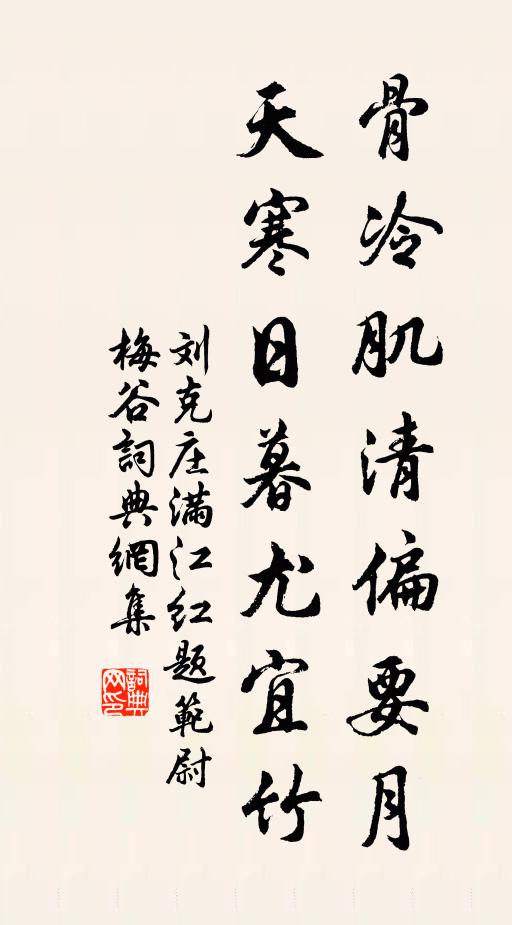 骨冷肌清偏要月
天寒日暮尤宜竹
刘克庄满江红题範尉
梅谷詞典網集
詞典网印